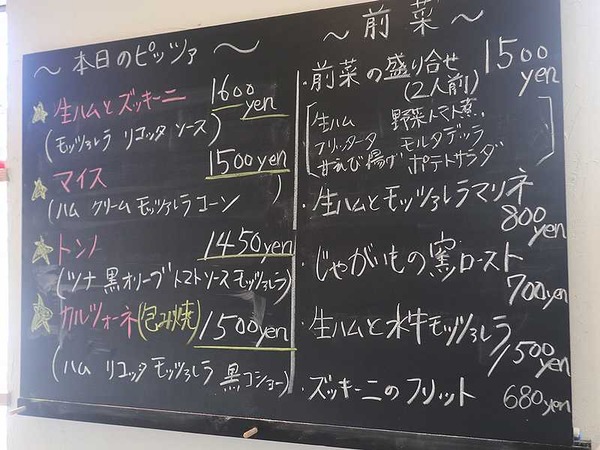 ～本日のピッツァ～
☆生ハムとズッキーニ 1600yen
(モッツァレラ リコッタ ソース)
☆マイス 1500yen
(ハム クリーム モッツァレラ コーン)
☆トンノ 1450yen
(ツナ 黒オリーブ トマトソース モッツァレラ)
☆カルツォーネ(包み焼) 1500yen
(ハム リコッタ モッツァレラ 黒コショー)
～前菜～
・前菜の盛り合せ 1500yen
(2人前)
生ハム 野菜トマト煮
フリッタータ モルタデッラ
甘えび揚げ ポテトサラダ
・生ハムとモッツァレラマリネ
800yen
・じゃがいもの窯ロースト
700yen
・生ハムと水牛モッツァレラ
1500yen
・ズッキーニのフリット 680yen